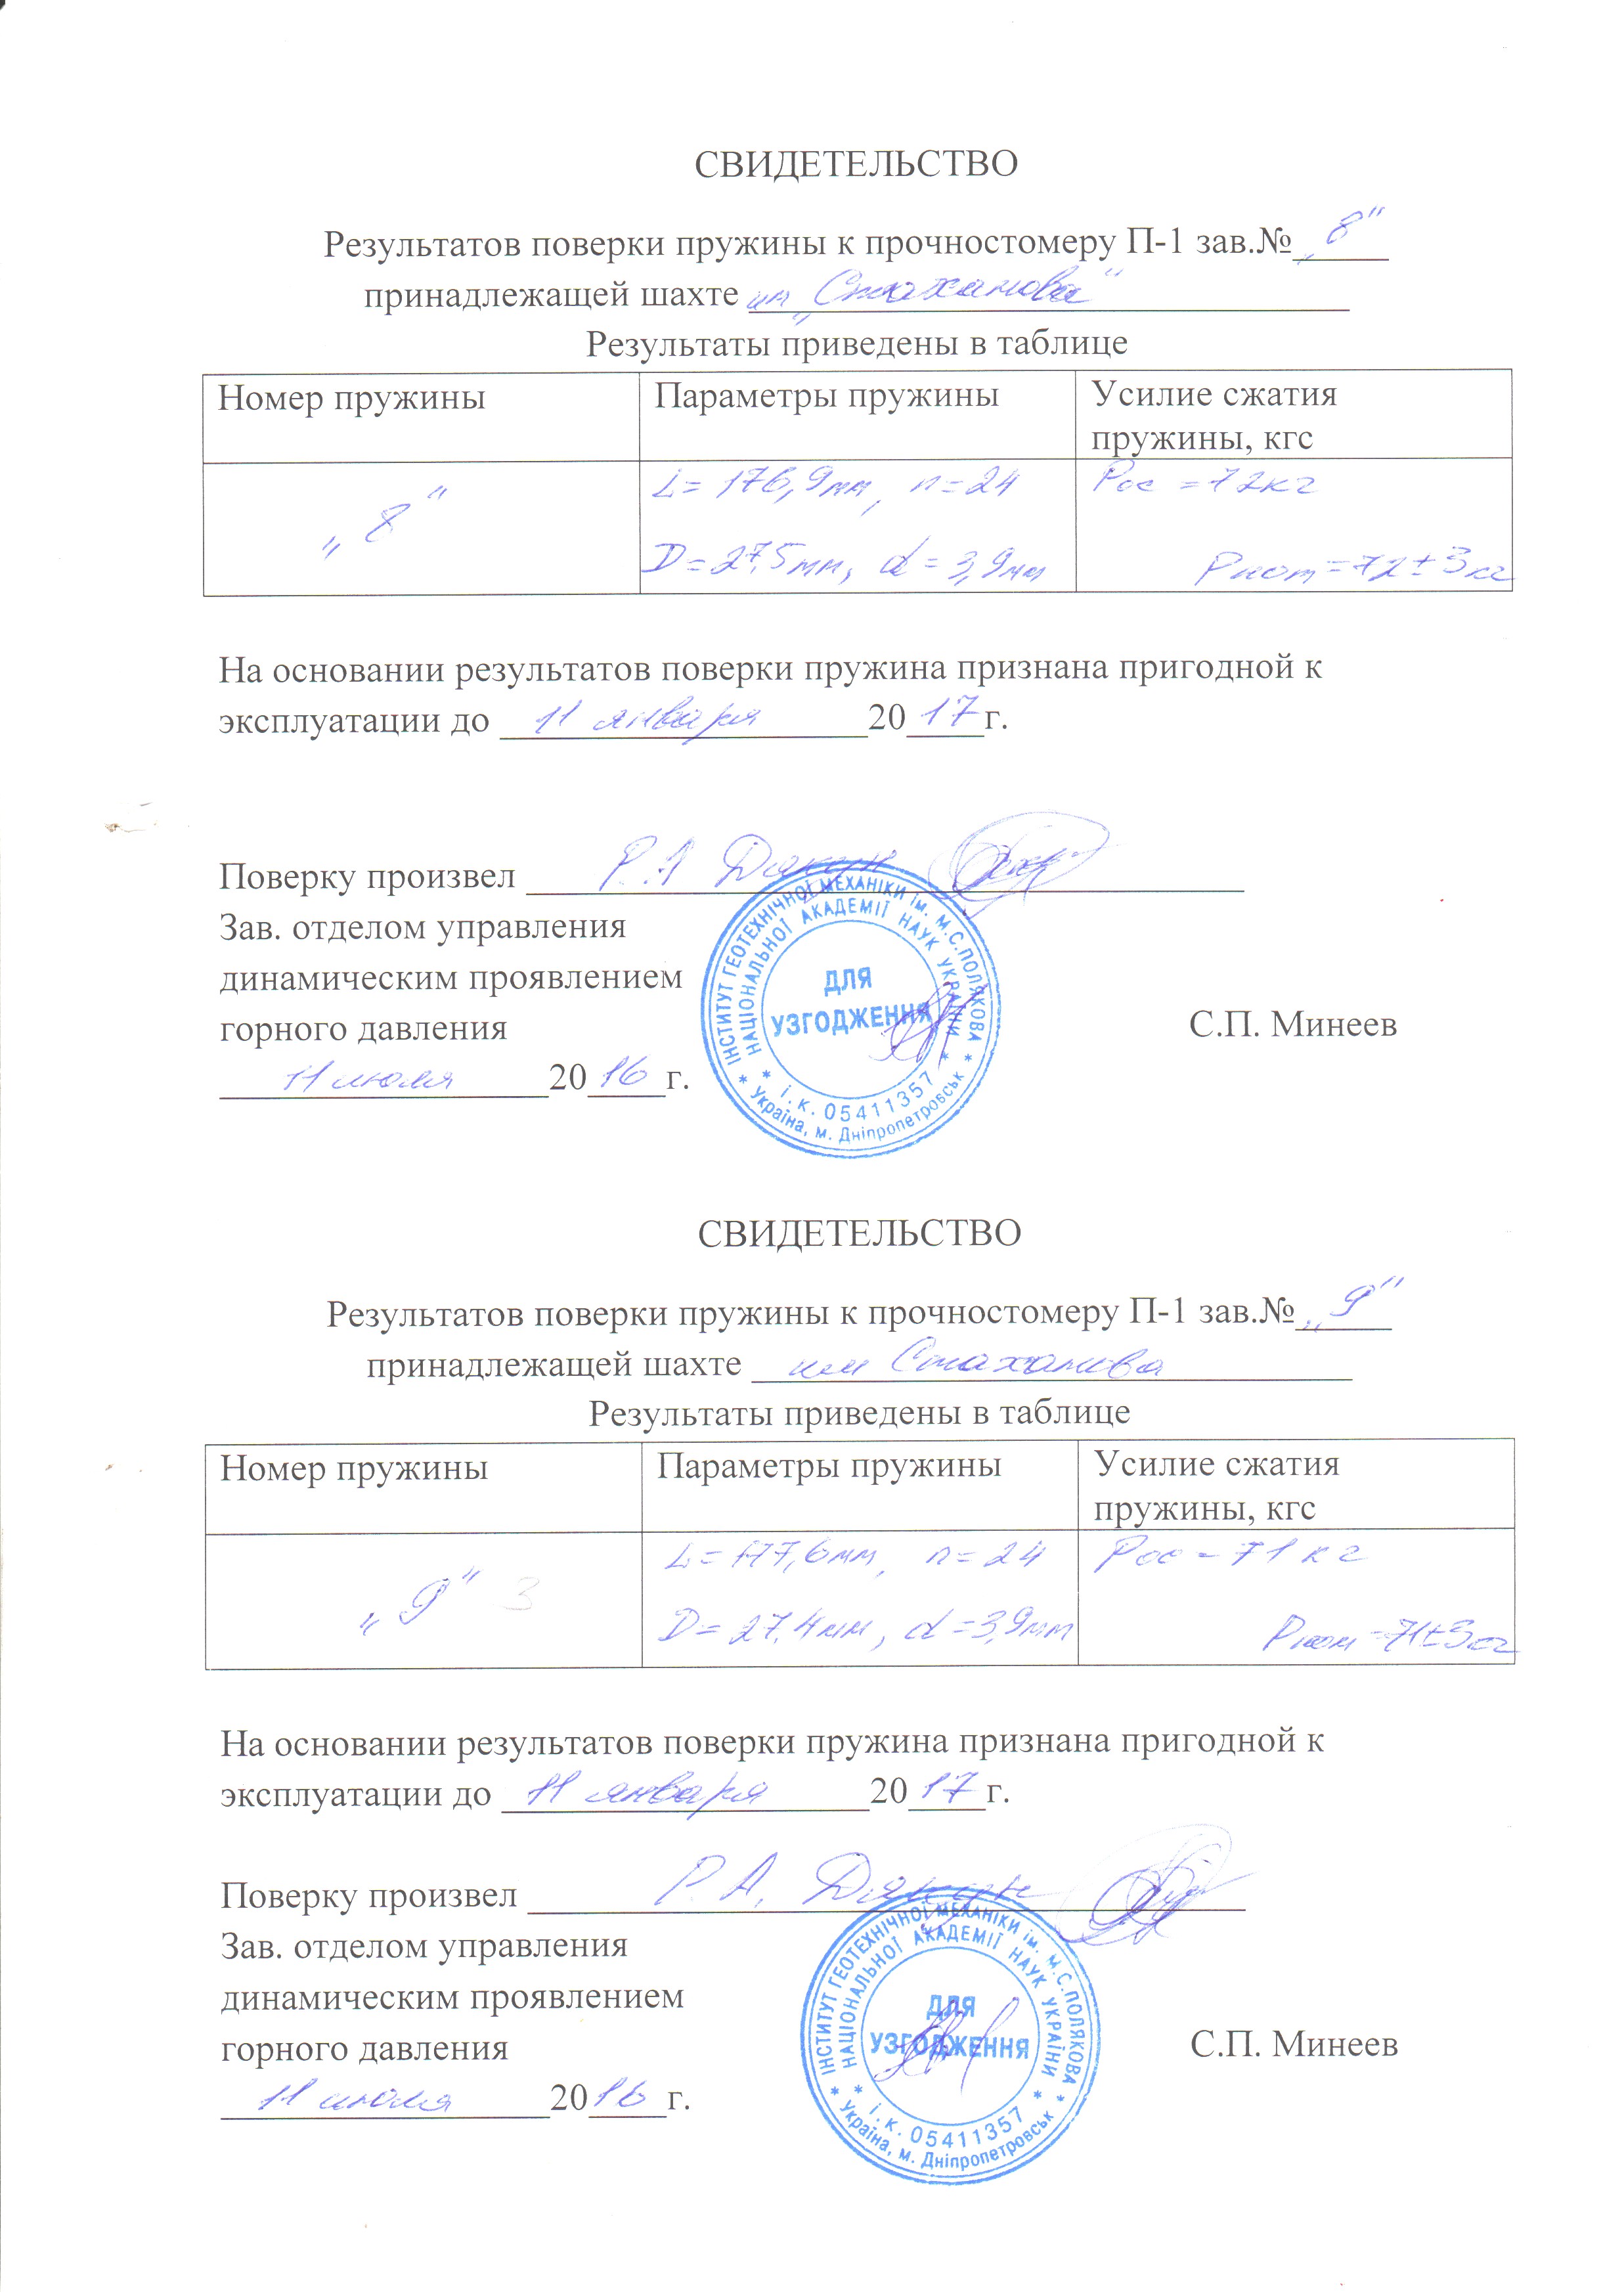 СВИДЕТЕЛЬСТВО
Результатов поверки пружины к прочностомеру П-1 зав.№ „8“
принадлежащей шахте им „Стаханова“
Результаты приведены в таблице
Номер пружины Параметры пружины Усилие сжатия пружины, кгс
„8“ L=176,9мм, n=24 Pос =72кг
D=27,5мм, d=3,9мм Pном=72±3кг
На основании результатов поверки пружина признана пригодной к
эксплуатации до 11 января 2017г.
Поверку произвел Р.А Дякун
Зав. отделом управления
динамическим проявлением
горного давления С.П. Минеев
11 июля 2016г.
ІНСТИТУТ ГЕОТЕХНІЧНОЇ МЕХАНІКИ ім. М.С.ПОЛЯКОВА
НАЦІОНАЛЬНОЇ АКАДЕМІЇ НАУК УКРАЇНИ
ДЛЯ
УЗГОДЖЕННЯ
* і.к. 05411357 *
* Україна, м. Дніпропетровськ *
СВИДЕТЕЛЬСТВО
Результатов поверки пружины к прочностомеру П-1 зав.№ „9“
принадлежащей шахте им Стаханова
Результаты приведены в таблице
Номер пружины Параметры пружины Усилие сжатия пружины, кгс
„9“ 3 L=177,6мм, n=24 Pос = 71кг
D=27,4мм, d=3,9мм Pном =71±3кг
На основании результатов поверки пружина признана пригодной к
эксплуатации до 11 января 2017г.
Поверку произвел Р.А. Дякун
Зав. отделом управления
динамическим проявлением
горного давления С.П. Минеев
11 июля 2016г.
ІНСТИТУТ ГЕОТЕХНІЧНОЇ МЕХАНІКИ ім. М.С.ПОЛЯКОВА
НАЦІОНАЛЬНОЇ АКАДЕМІЇ НАУК УКРАЇНИ
ДЛЯ
УЗГОДЖЕННЯ
* і.к. 05411357 *
* Україна, м. Дніпропетровськ *